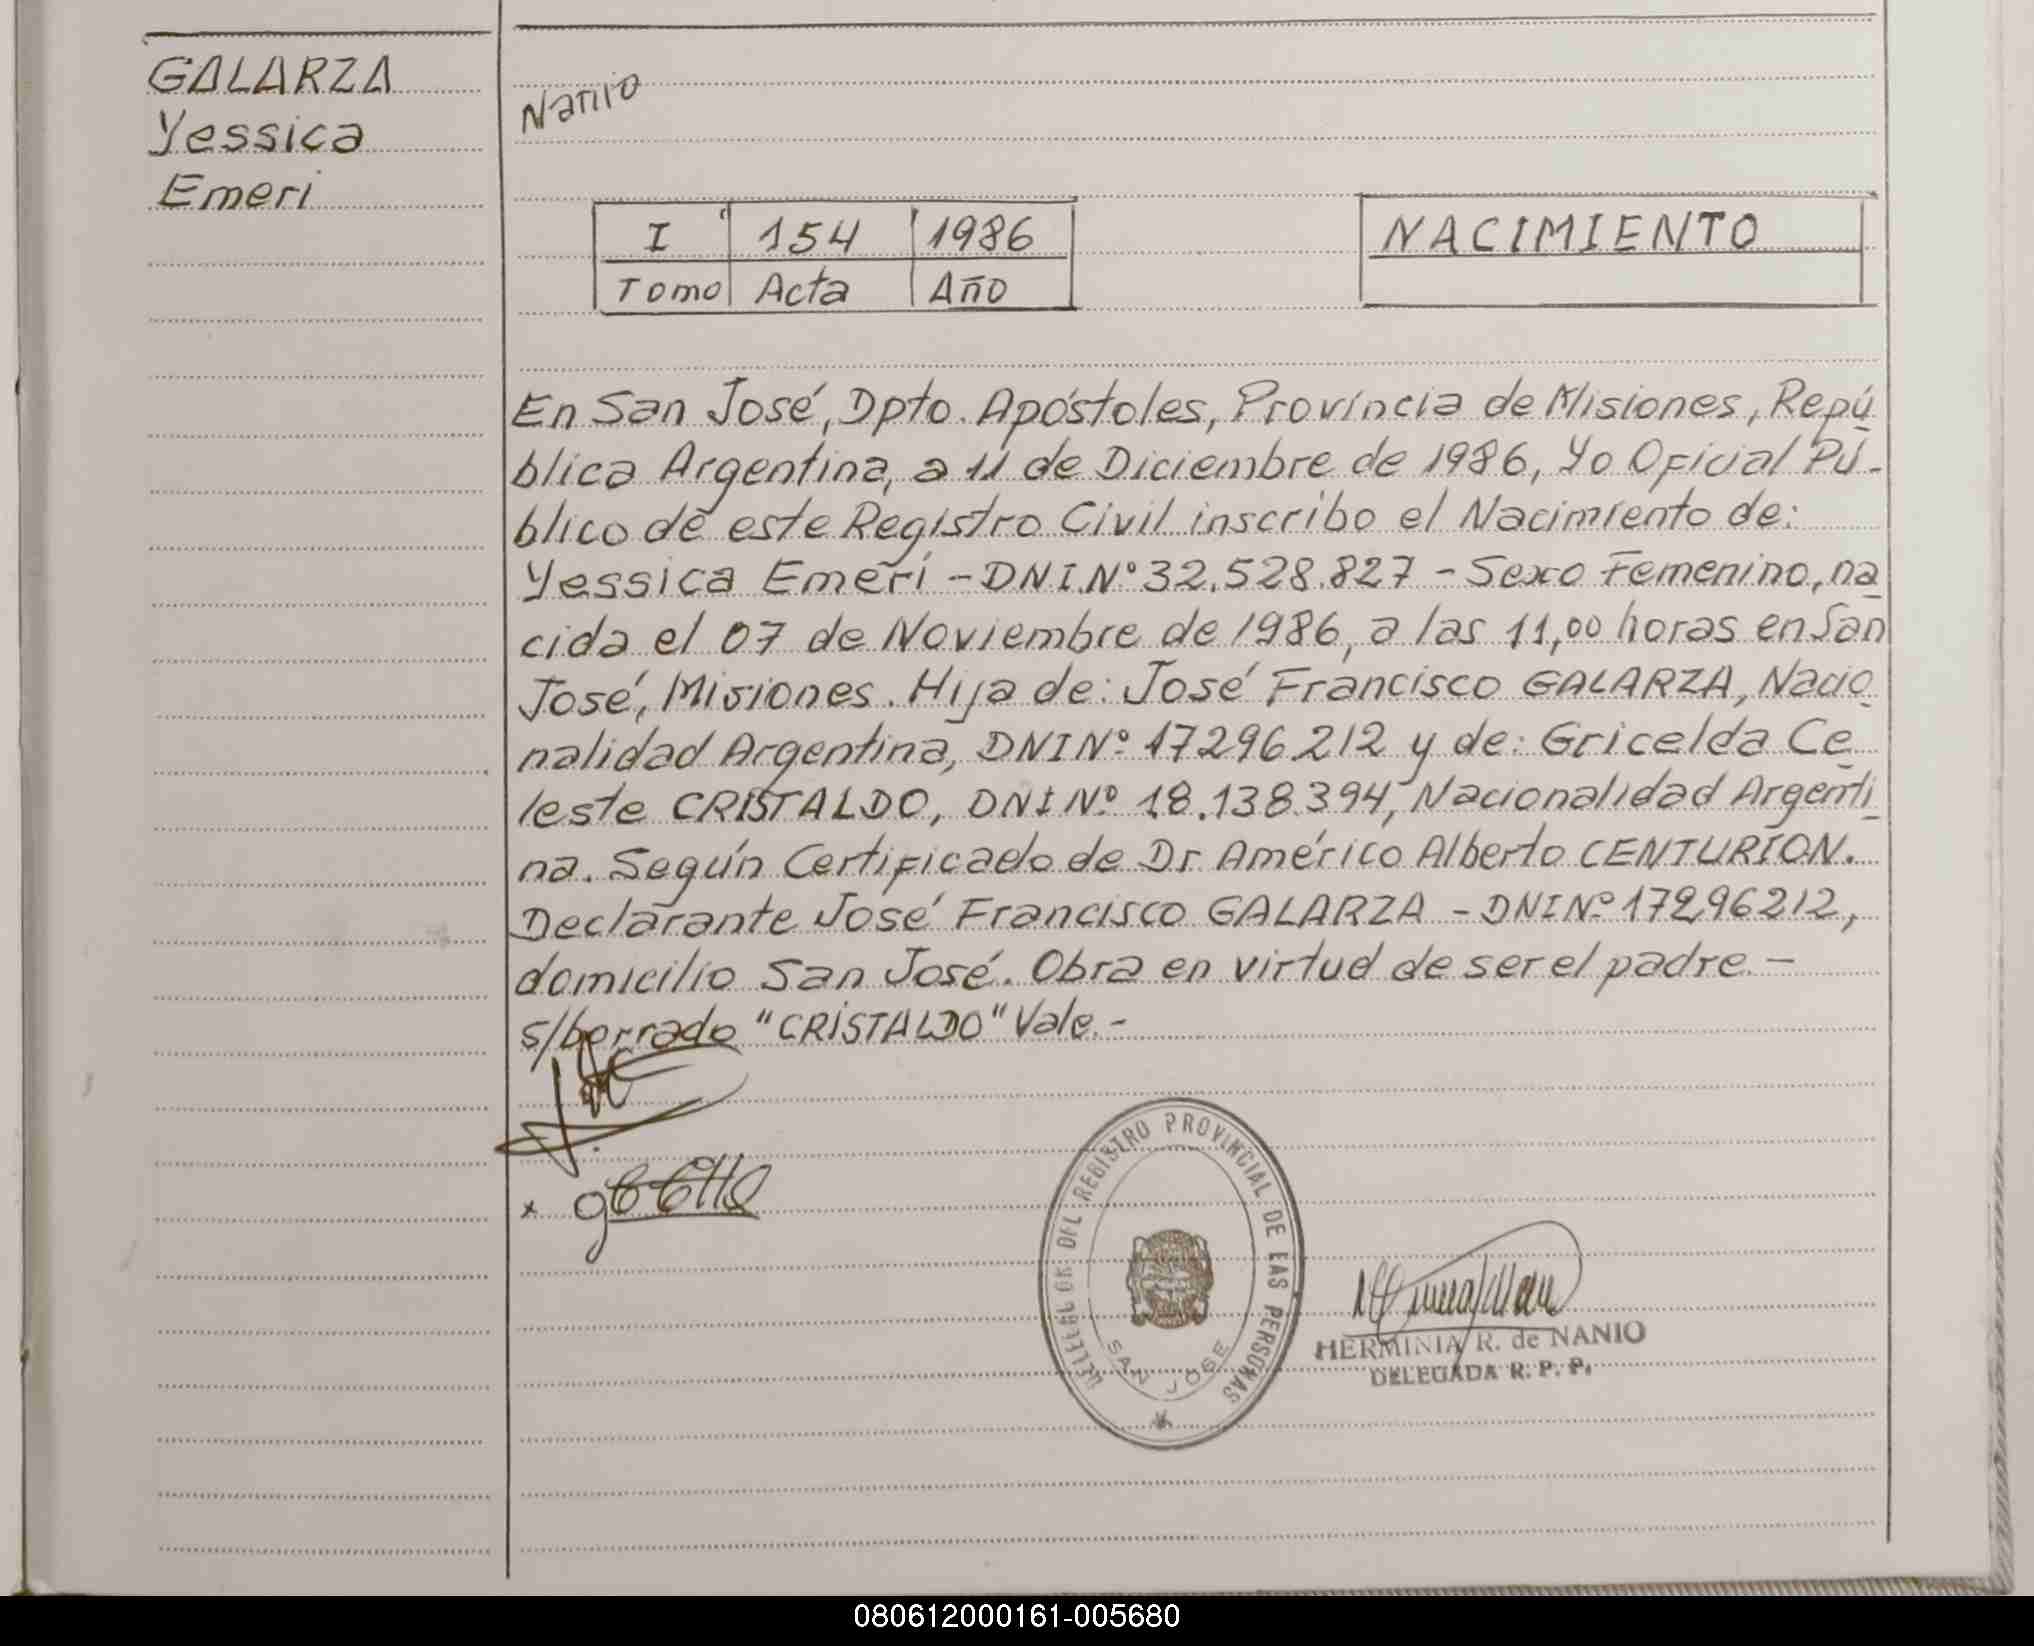 GALARZA
Yessica
Emeri
Nanio
I 154 1986
Tomo Acta Año
NACIMIENTO
En San José, Dpto. Apóstoles, Provincia de Misiones, Repú
blica Argentina, a 11 de Diciembre de 1986, Yo Oficial Pú-
blico de este Registro Civil inscribo el Nacimiento de:
Yessica Emeri - DNI.Nº 32.528.827 - Sexo Femenino, na
cida el 07 de Noviembre de 1986, a las 11,00 horas en San
José, Misiones. Hija de: José Francisco GALARZA, Nacio
nalidad Argentina, DNI Nº 17296212 y de: Gricelda Ce
leste CRISTALDO, DNI Nº 18.138.394, Nacionalidad Argenti
na. Según Certificado de Dr. Américo Alberto CENTURIÓN.
Declarante José Francisco GALARZA - DNI Nº 17296212,
domicilio San José. Obra en virtud de ser el padre. -
s/borrado "CRISTALDO" Vale. -
DEL REGISTRO PROVINCIAL DE LAS PERSONAS
SAN JOSE
HERMINIA R. de NANIO
DELEGADA R. P. P.
080612000161-005680